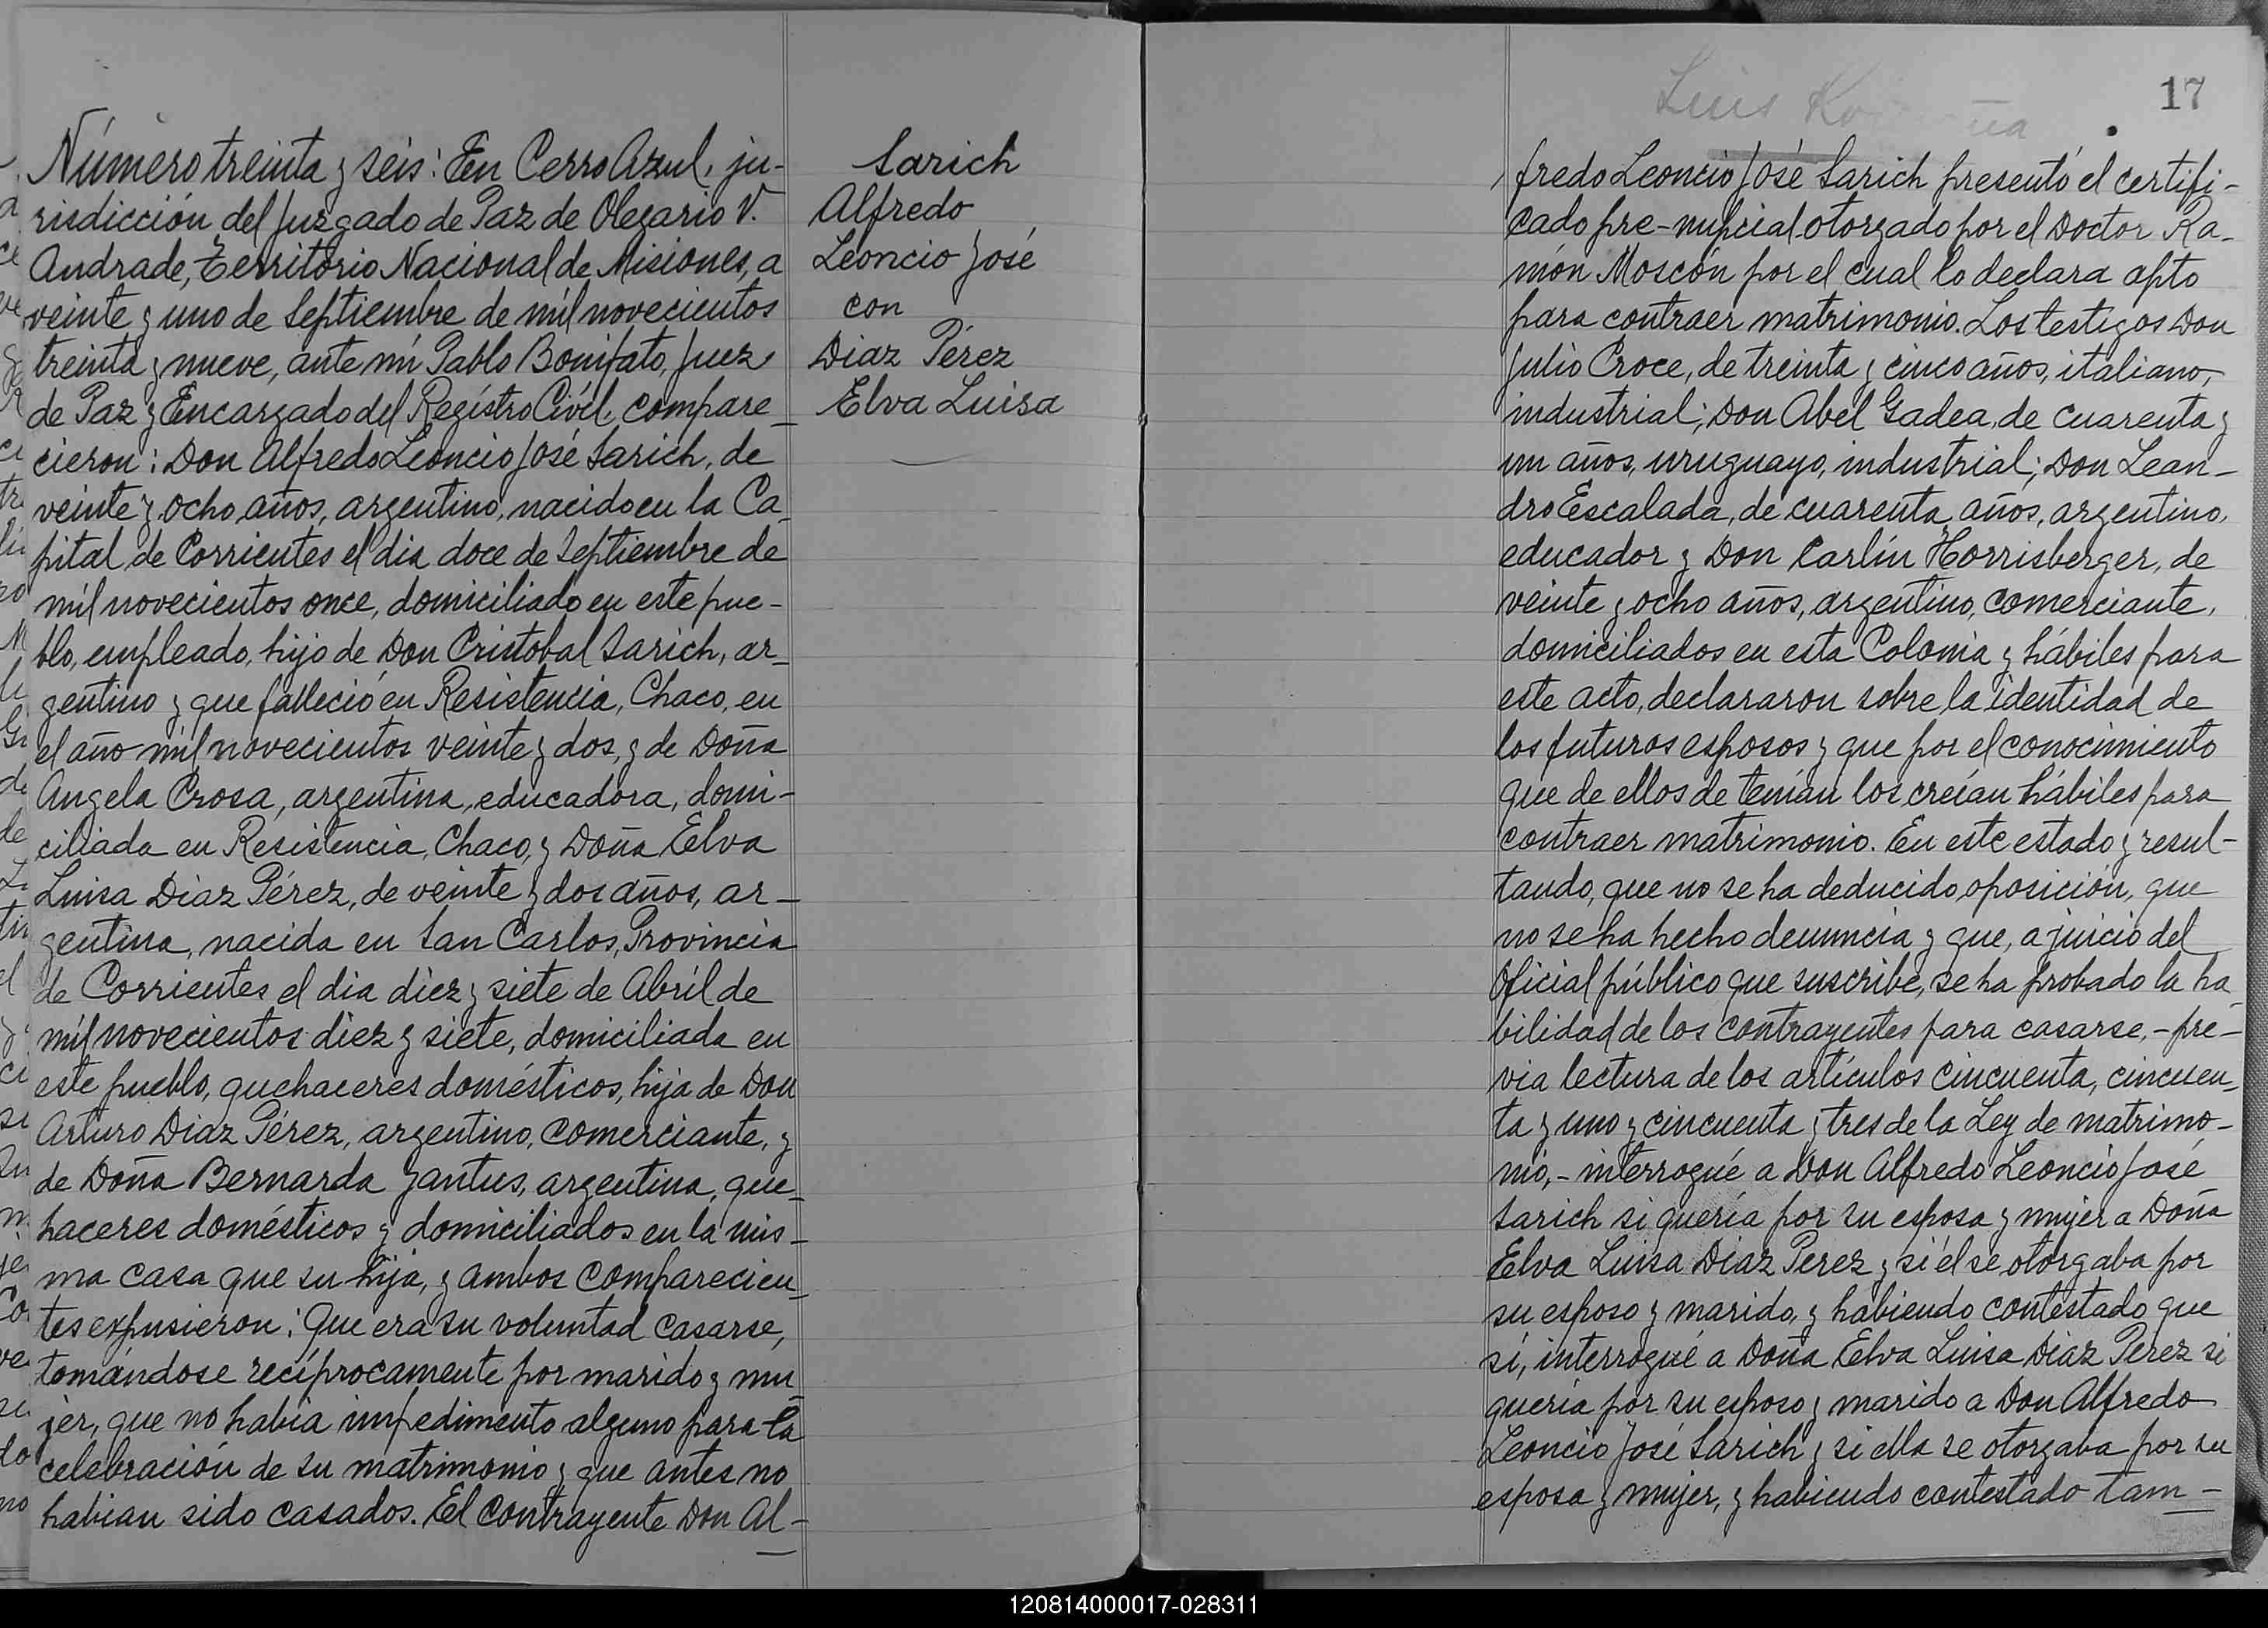 Número treinta y seis: En Cerro Azul, ju-
risdicción del Juzgado de Paz de Olegario V.
Andrade, Territorio Nacional de Misiones, a
veinte y uno de Septiembre de mil novecientos
treinta y nueve, ante mí Pablo Bonifato, Juez
de Paz y Encargado del Regístro Civíl, compare_
cieron: Don Alfredo Leoncio José Sarich, de
veinte y ocho años, argentino, nacido en la Ca_
pital de Corrientes el dia doce de Septiembre de
mil novecientos once, domiciliado en este pue-
blo, empleado, hijo de Don Cristobal Sarich, ar_
gentino y que falleció en Resistencia, Chaco, en
el año mil novecientos veinte y dos, y de Doña
Angela Crosa, argentina, educadora, domi-
ciliada en Resistencia, Chaco, y Doña Elva
Luisa Diaz Pérez, de veinte y dos años, ar-
gentina, nacida en San Carlos, Provincia
de Corrientes el dia diez y siete de Abríl de
mil novecientos diez y siete, domiciliada en
este pueblo, quehaceres domésticos, hija de Don
Arturo Diaz Pérez, argentino, comerciante, y
de Doña Bernarda Yantus, argentina, que_
haceres domésticos y domiciliados en la mis-
ma casa que su hija, y ambos comparecien_
tes expusieron: Que era su voluntad casarse,
tomándose recíprocamente por marido y mu_
jer, que no habia impedimento alguno para la
celebración de su matrimonio y que antes no
habian sido casados. El contrayente Don Al-
Sarich
Alfredo
Leoncio José
con
Diaz Pérez
Elva Luisa
Luis
17
fredo Leoncio José Sarich presentó el certifi-
cado pre-nupcial otorgado por el Doctor Ra-
món Moscón por el cual lo declara apto
para contraer matrimonio. Los testigos Don
Julio Croce, de treinta y cinco años, italiano,
industrial; Don Abel Gadea, de cuarenta y
un años, uruguayo, industrial; Don Lean-
dro Escalada, de cuarenta años, argentino,
educador y Don Carlín Horrisberger, de
veinte y ocho años, argentino, comerciante,
domiciliados en esta Colonia y hábiles para
este acto, declararon sobre la identidad de
los futuros esposos y que por el conocimiento
que de ellos de tenían los creían hábiles para
contraer matrimonio. En este estado y resul-
tando, que no se ha deducido oposición, que
no se ha hecho denuncia y que, a juicio del
Oficial público que suscribe, se ha probado la ha_
bilidad de los contrayentes para casarse,-pre-
via lectura de los artículos cincuenta, cincuen_
ta y uno y cincuenta y tres de la Ley de matrimo-
nio,-interrogué a Don Alfredo Leoncio José
Sarich si quería por su esposa y mujer a Doña
Elva Luisa Diaz Perez y si él se otorgaba por
su esposo y marido, y habiendo contestado que
sí, interrogué a Doña Elva Luisa Diaz Perez si
quería por su esposo y marido a Don Alfredo
Leoncio José Sarich y si ella se otorgaba por su
esposa y mujer, y habiendo contestado tam-
120814000017-028311